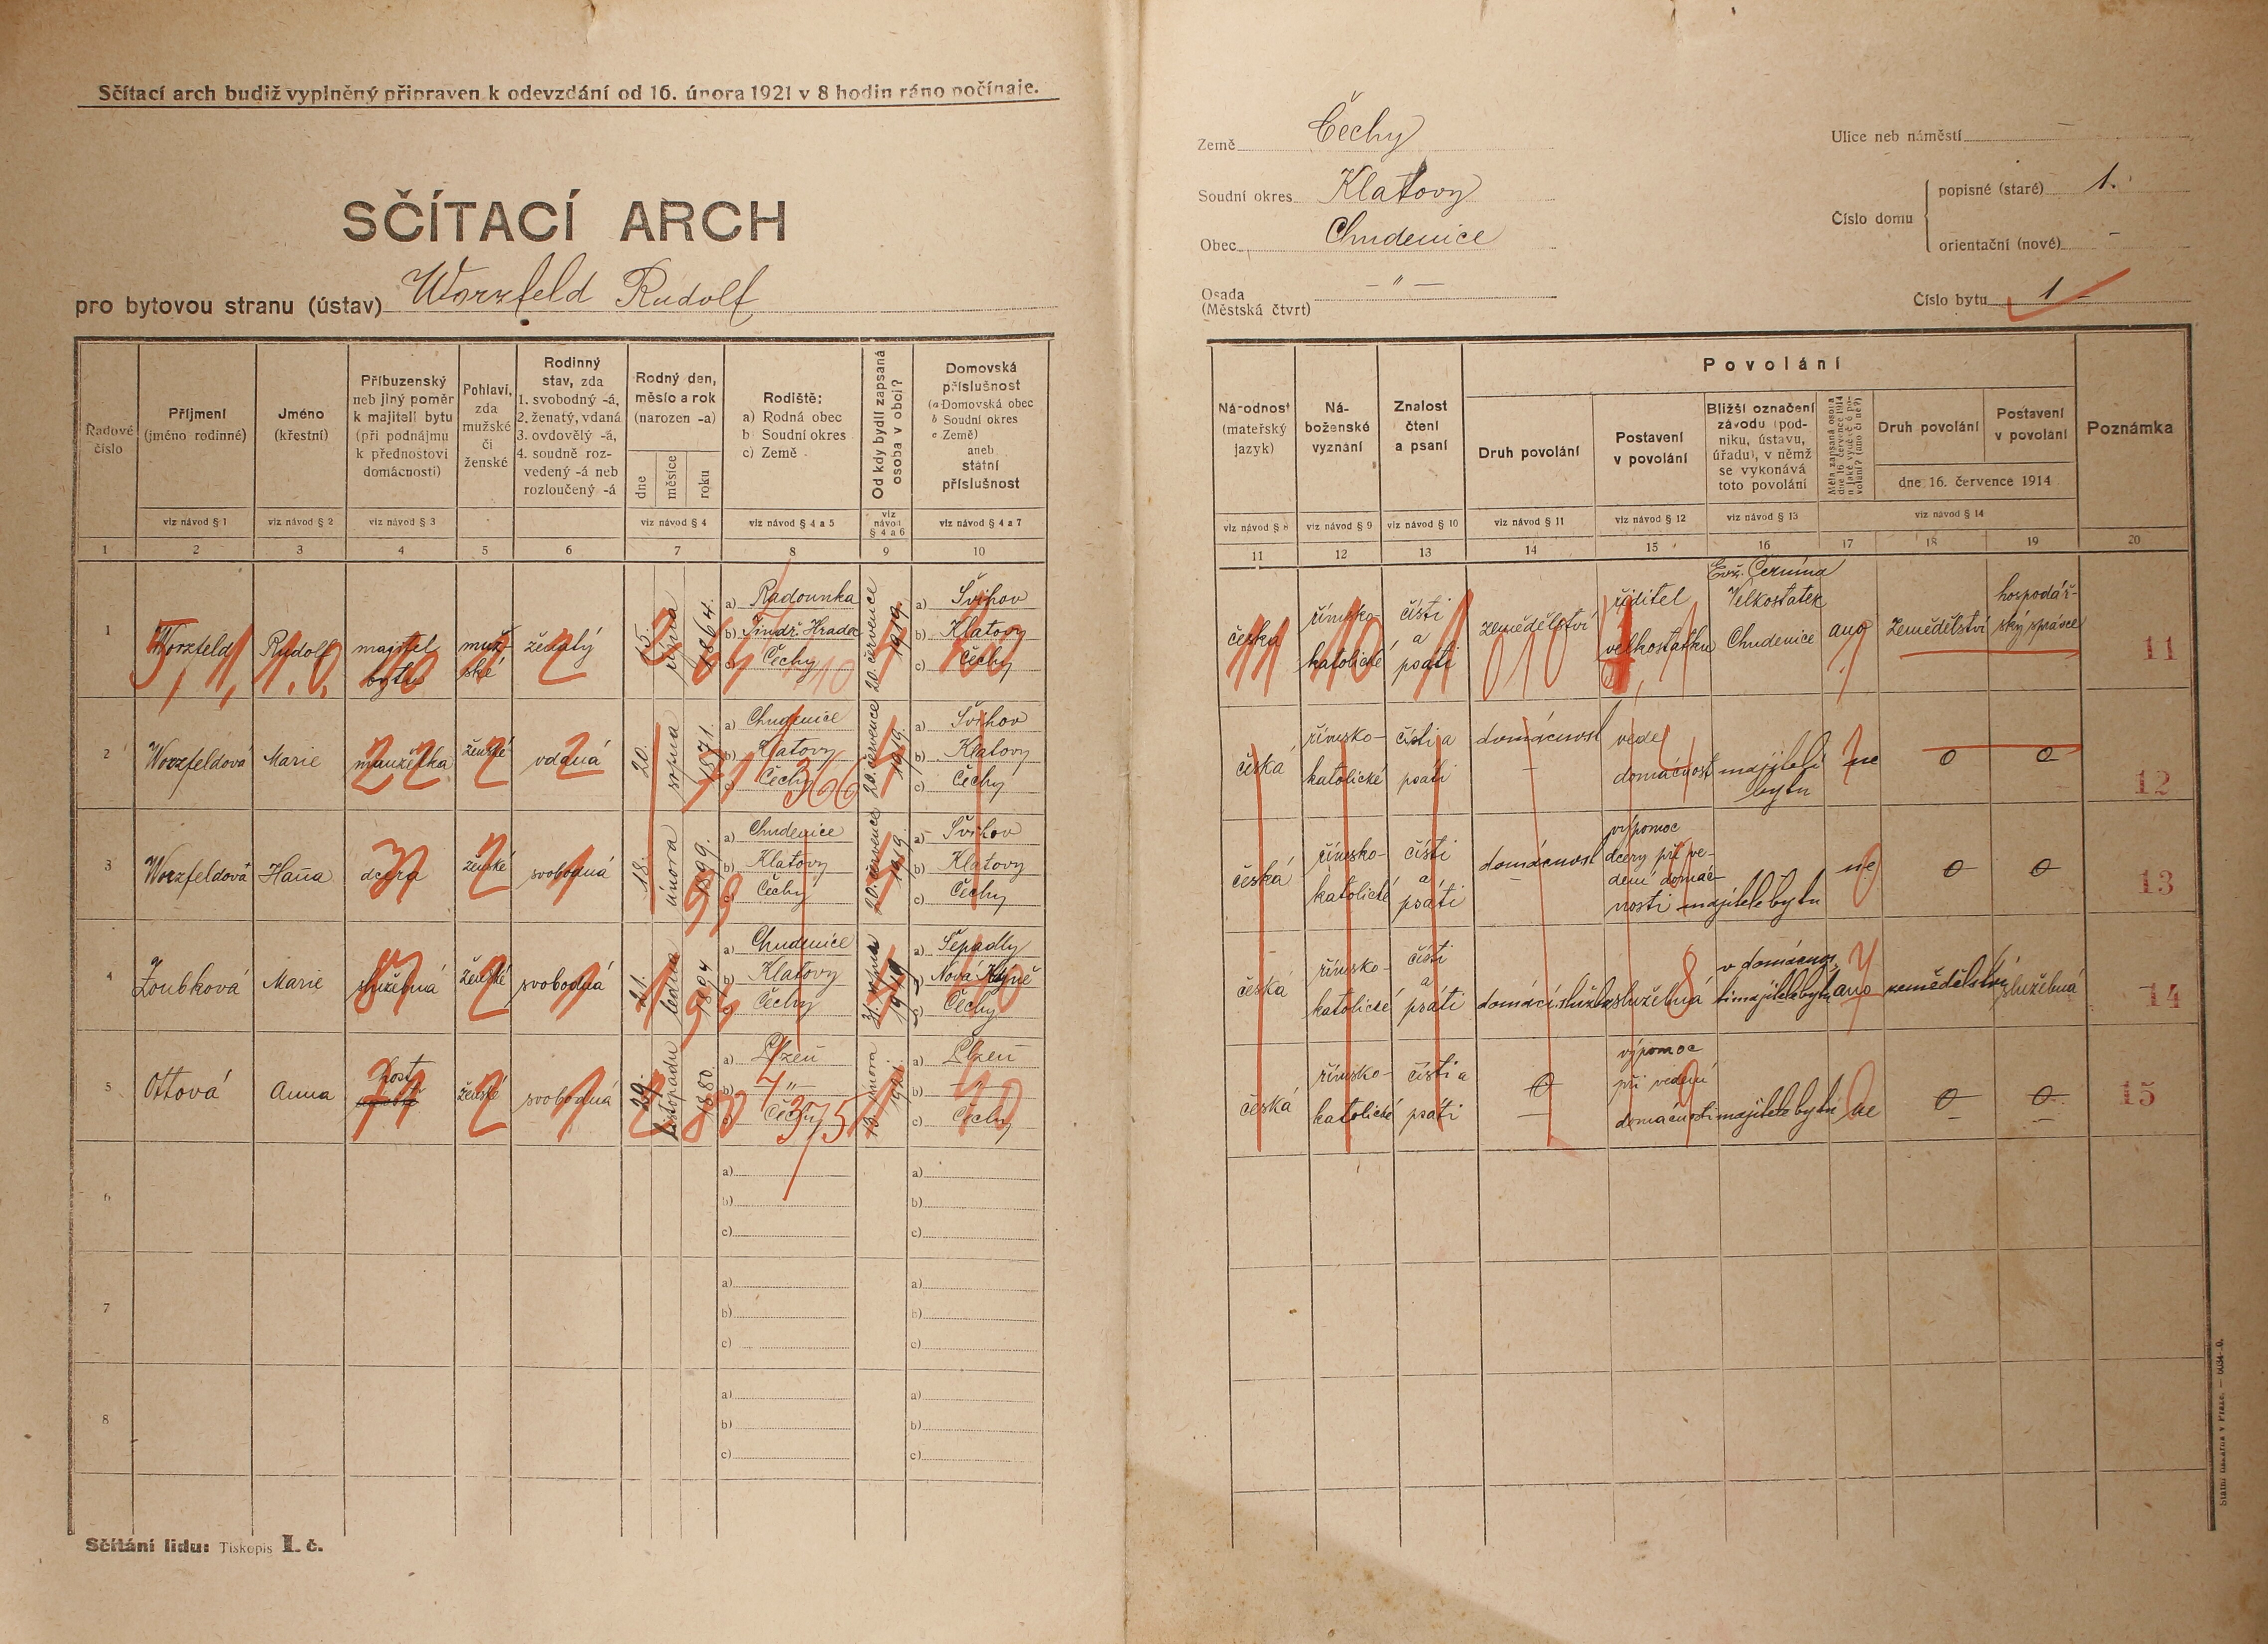 Sčítací arch budiž vyplněný připraven k odevzdání od 16. února 1921 v 8 hodin ráno počínaje.
SČÍTACÍ ARCH
pro bytovou stranu (ústav) Worzfeld Rudolf
Země Čechy
Soudní okres Klatovy
Obec Chudenice
Osada — " —
(Městská čtvrt)
Ulice neb náměstí —
Číslo domu
popisné (staré) 1.
orientační (nové) —
Číslo bytu 1 —
Řadové číslo
Příjmení (jméno rodinné)
Jméno (křestní)
Příbuzenský neb jiný poměr k majiteli bytu (při podnájmu k přednostovi domácnosti)
Pohlaví, zda mužské či ženské
Rodinný stav, zda 1. svobodný -á, 2. ženatý, vdaná 3. ovdovělý -á, 4. soudně rozvedený -á neb rozloučený -á
Rodný den, měsíc a rok (narozen -a)
dne měsíce roku
Rodiště: a) Rodná obec b) Soudní okres c) Země
Od kdy bydlí zapsaná osoba v obci?
Domovská příslušnost (a Domovská obec b Soudní okres c Země) aneb státní příslušnost
viz návod § 1 viz návod § 2 viz návod § 3 viz návod § 4 viz návod § 4 a 5 viz návod § 4 a 6 viz návod § 4 a 7
1 2 3 4 5 6 7 8 9 10
Národnost (mateřský jazyk)
Náboženské vyznání
Znalost čtení a psaní
Povolání
Druh povolání
Postavení v povolání
Bližší označení závodu (podniku, ústavu, úřadu), v němž se vykonává toto povolání
Druh povolání
Postavení v povolání
dne 16. července 1914
Poznámka
viz návod § 8 viz návod § 9 viz návod § 10 viz návod § 11 viz návod § 12 viz návod § 13 viz návod § 14
11 12 13 14 15 16 17 18 19 20
1 Worzfeld Rudolf majitel bytu mužské ženatý 15. 1864. a) Radounka b) Jindř. Hradec c) Čechy 20. července 1919. a) Švihov b) Klatovy c) Čechy
česká římsko-katolické čísti a psáti zemědělství ředitel velkostatku Evž. Černína Velkostatek Chudenice ano Zemědělství hospodářský správce 11
2 Worzfeldová Marie manželka ženské vdaná 20. srpna 1871. a) Chudenice b) Klatovy c) Čechy 20. července 1919. a) Švihov b) Klatovy c) Čechy
česká římsko-katolické čísti a psáti domácnost — vede domácnost majiteli bytu ne 0 0 12
3 Worzfeldová Hana dcera ženské svobodná 18. února 1899. a) Chudenice b) Klatovy c) Čechy 20. července 1919. a) Švihov b) Klatovy c) Čechy
česká římsko-katolické čísti a psáti domácnost — výpomoc dcery při vedení domácnosti majitele bytu ne 0 0 13
4 Zoubková Marie služebná ženské svobodná 21. ledna 1894 a) Chudenice b) Klatovy c) Čechy 1919 a) Šepadly b) Nová Kdyně c) Čechy
česká římsko-katolické čísti a psáti domácí služba služebná v domácnosti majitele bytu ano zemědělství služebná 14
5 Ottová Anna host ženské svobodná 29. listopadu 1880. a) Plzeň b) — " — c) Čechy února 1921. a) Plzeň b) — " — c) Čechy
česká římsko-katolické čísti a psáti 0 — výpomoc při vedení domácnosti majitele bytu ne 0 — 0 — 15
6 a) b) c) a) b) c)
7 a) b) c) a) b) c)
8 a) b) c) a) b) c)
Sčítání lidu: Tiskopis I. č.